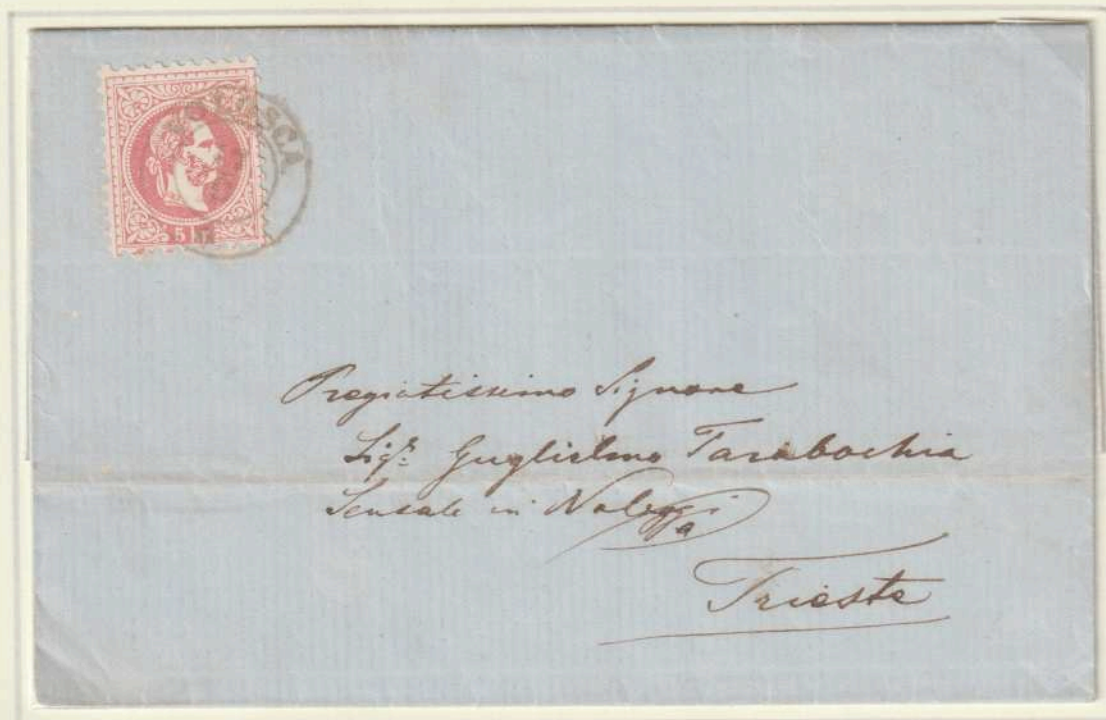 5 kr
VOLOSCA
Pregiatissimo Signore
Sigr: Guglielmo Tarabochia
Sensale in Noleggi
a
Trieste